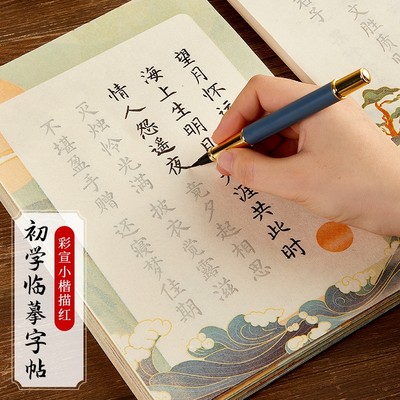 望月怀远
海上生明月 涯共此时
情人怨遥夜 竟夕起相思
灭烛怜光满 披衣觉露滋
不堪盈手赠 还寝梦佳期
文胜质则
子
彩宣小楷描红
初学临摹字帖